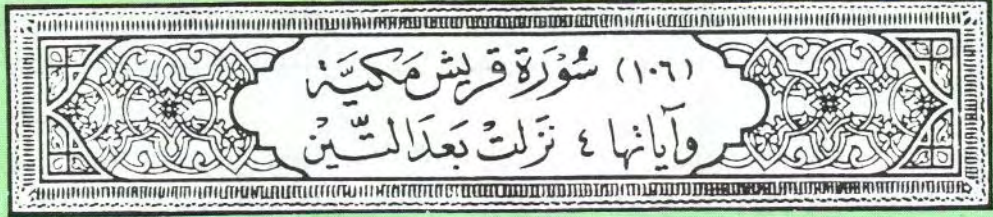 (١٠٦) سُوْرَة قريش مَكيَّة
وآياتها ٤ نَزَلتْ بَعَدَ التِّين